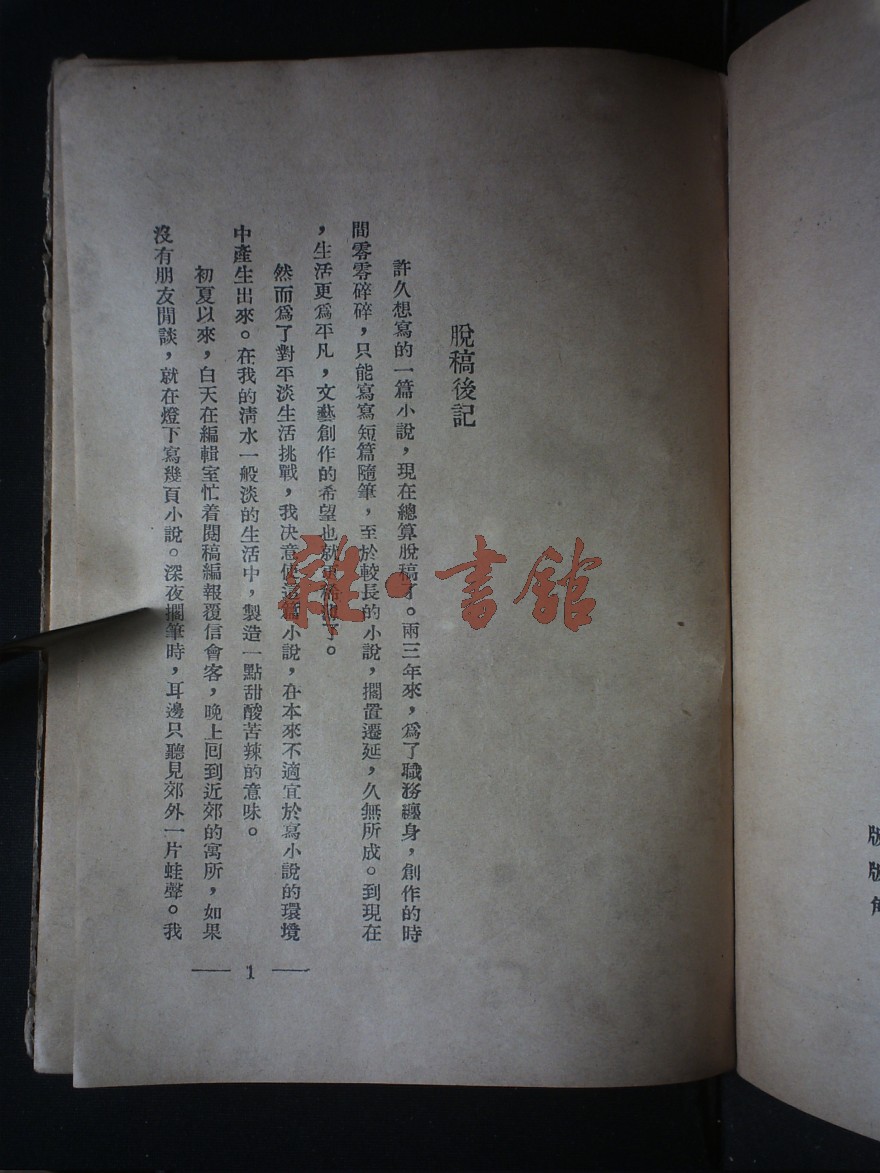 脫稿後記
許久想寫的一篇小說，現在總算脫稿了。兩三年來，爲了職務纏身，創作的時
間零零碎碎，只能寫寫短篇隨筆，至於較長的小說，擱置遷延，久無所成。到現在
，生活更爲平凡，文藝創作的希望也就更稀少了。
然而爲了對平淡生活挑戰，我決意使這篇小說，在本來不適宜於寫小說的環境
中產生出來。在我的淸水一般淡的生活中，製造一點甜酸苦辣的意味。
初夏以來，白天在編輯室忙着閱稿編報覆信會客，晚上囘到近郊的寓所，如果
沒有朋友閒談，就在燈下寫幾頁小說。深夜擱筆時，耳邊只聽見郊外一片蛙聲。我
— 1 —
雜·書館
版
版